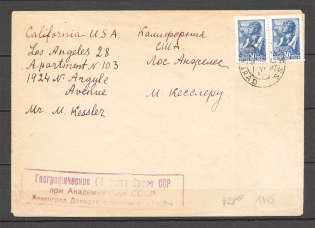 California U.S.A.
Los Angeles 28
Apartment N 103
1924 N. Argyle
Avenue
Mr. M. Kessler
Калифорния
США
Лос Анжелес
М. Кесслеру
Географическое Общество Союза ССР
при Академии Наук СССР
Ленинград
1948